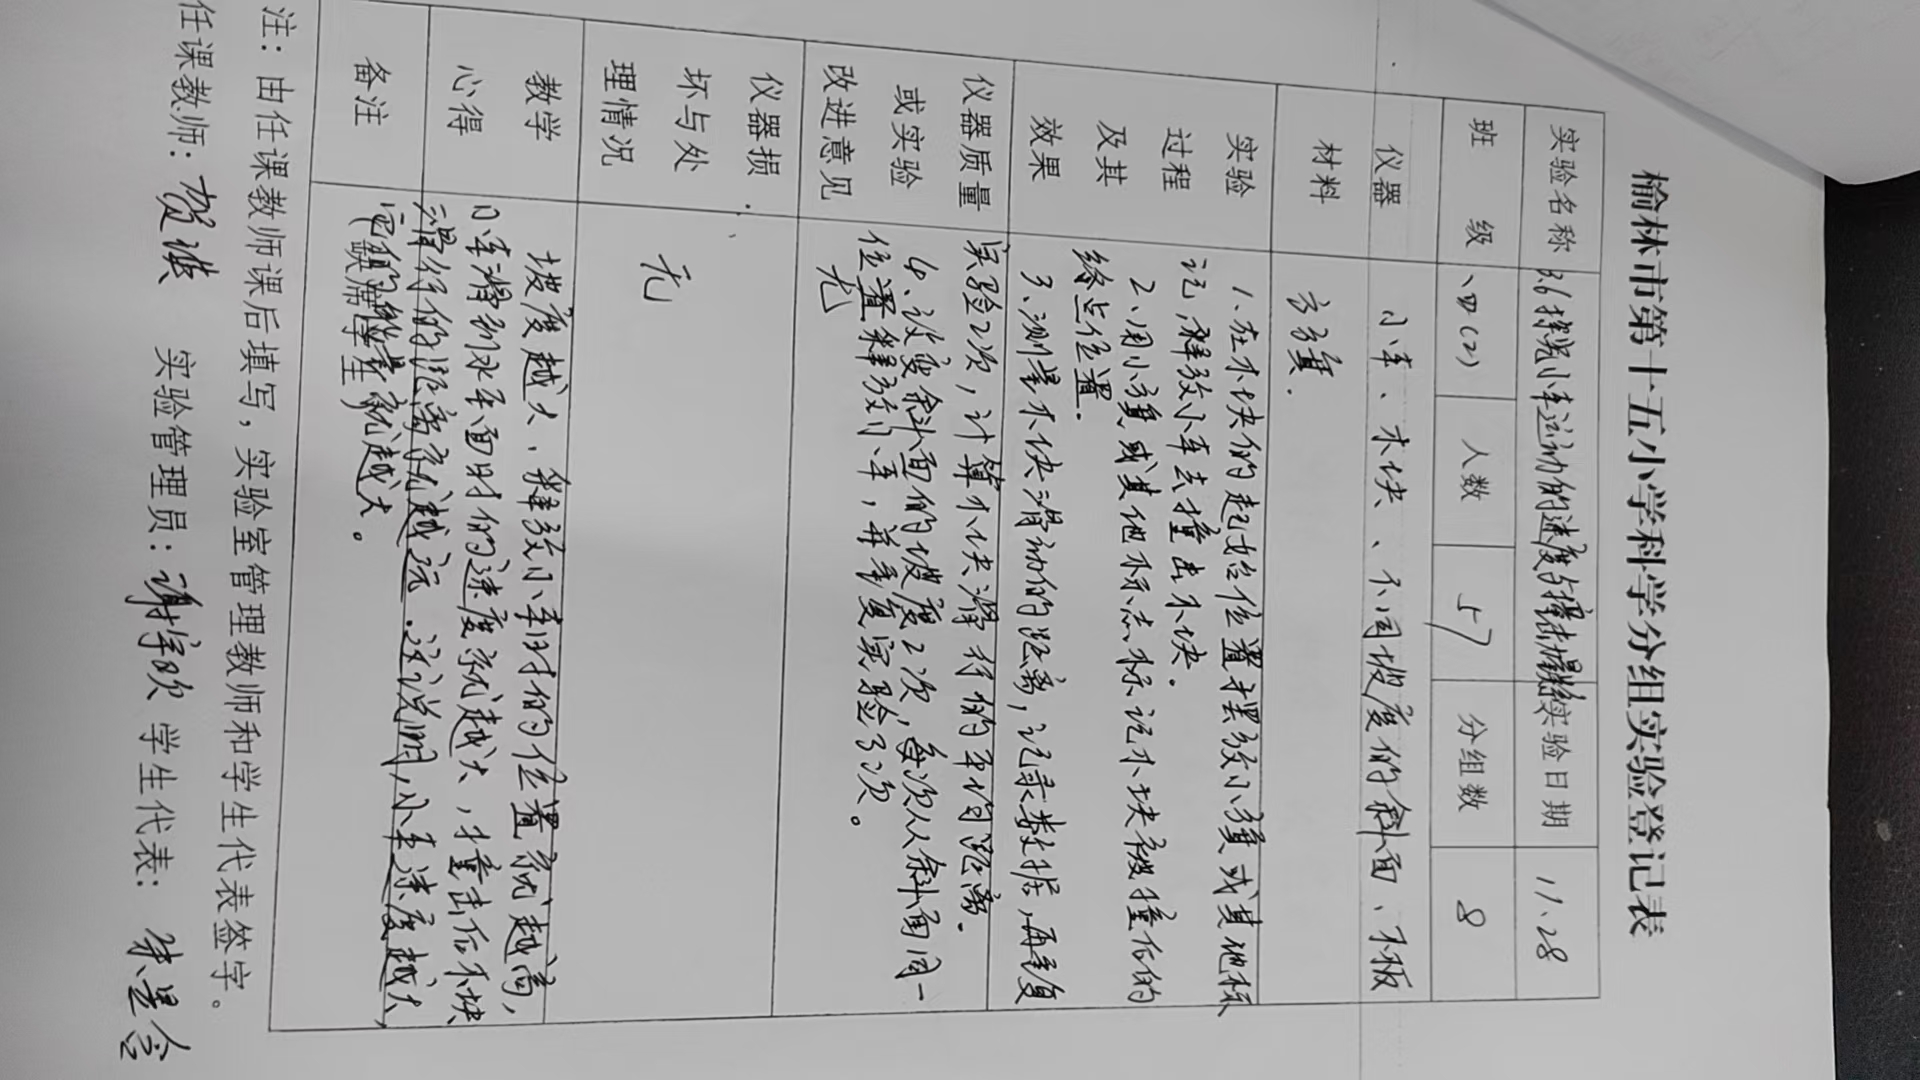 榆林市第十五小学科学分组实验登记表
实验名称 3.6探究小车运动的速度与撞击 实验日期 11.28
班级 四(2) 人数 57 分组数 8
仪器材料 小车、木块、不同坡度的斜面、木板
方旗.
实验过程及其效果 1、在木块的起始位置摆放小旗或其他标
记,释放小车去撞击木块.
2、用小旗或其他标志标记木块被撞后的
终点位置.
3、测量木块滑动的距离,记录数据,再重复
实验2次,计算木块滑行的平均距离.
4、改变斜面的坡度2次,每次从斜面同一
位置释放小车,并重复实验3次。
仪器质量或实验改进意见 无
仪器损坏与处理情况 无
教学心得 坡度越大,释放小车时的位置就越高,
小车滑到水平面时的速度就越大,撞击后木块
滑行的距离就越远.这说明,小车速度越大,
能量就越大。
备注 (缺席学生)
注:由任课教师课后填写,实验室管理教师和学生代表签字。
任课教师: 贺 实验管理员: 谢 学生代表: